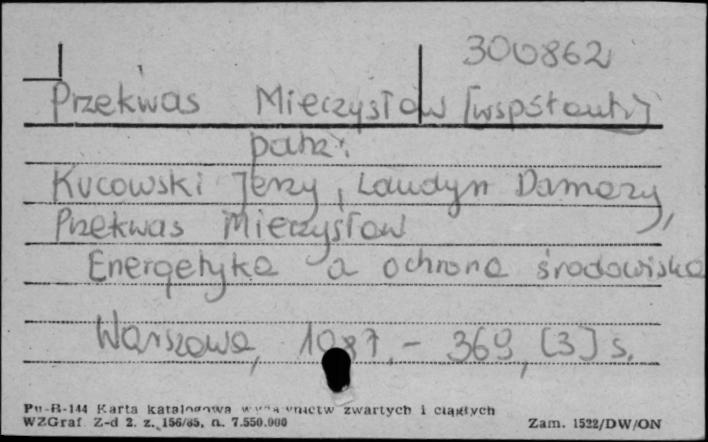 300862
Przekwas Mieczysław [współaut.]
patrz:
Kucowski Jerzy, Laudyn Damazy,
Przekwas Mieczysław
Energetyka a ochrona środowiska
Warszawa, 1987. - 369, [3] s.
Pu-B-144 Karta katalogowa wydawnictw zwartych i ciągłych
WZGraf. Z-d 2. z. 156/85, n. 7.550.000 Zam. 1522/DW/ON